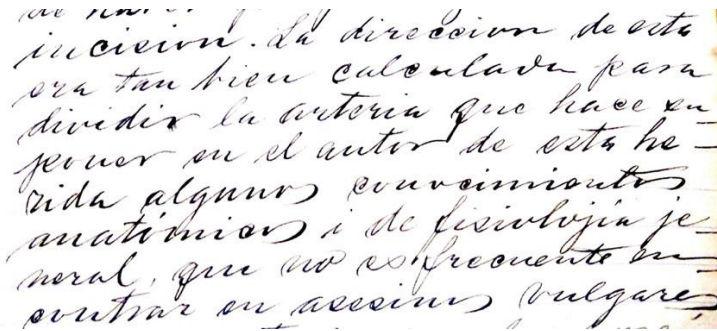 incision. La direccion de esta
era tan bien calculada para
dividir la arteria que hace su
poner en el autor de esta he-
rida algunos conocimientos
anatómicos i de fisiolojía je-
neral, que no es frecuente en
contrar en asesinos vulgares,